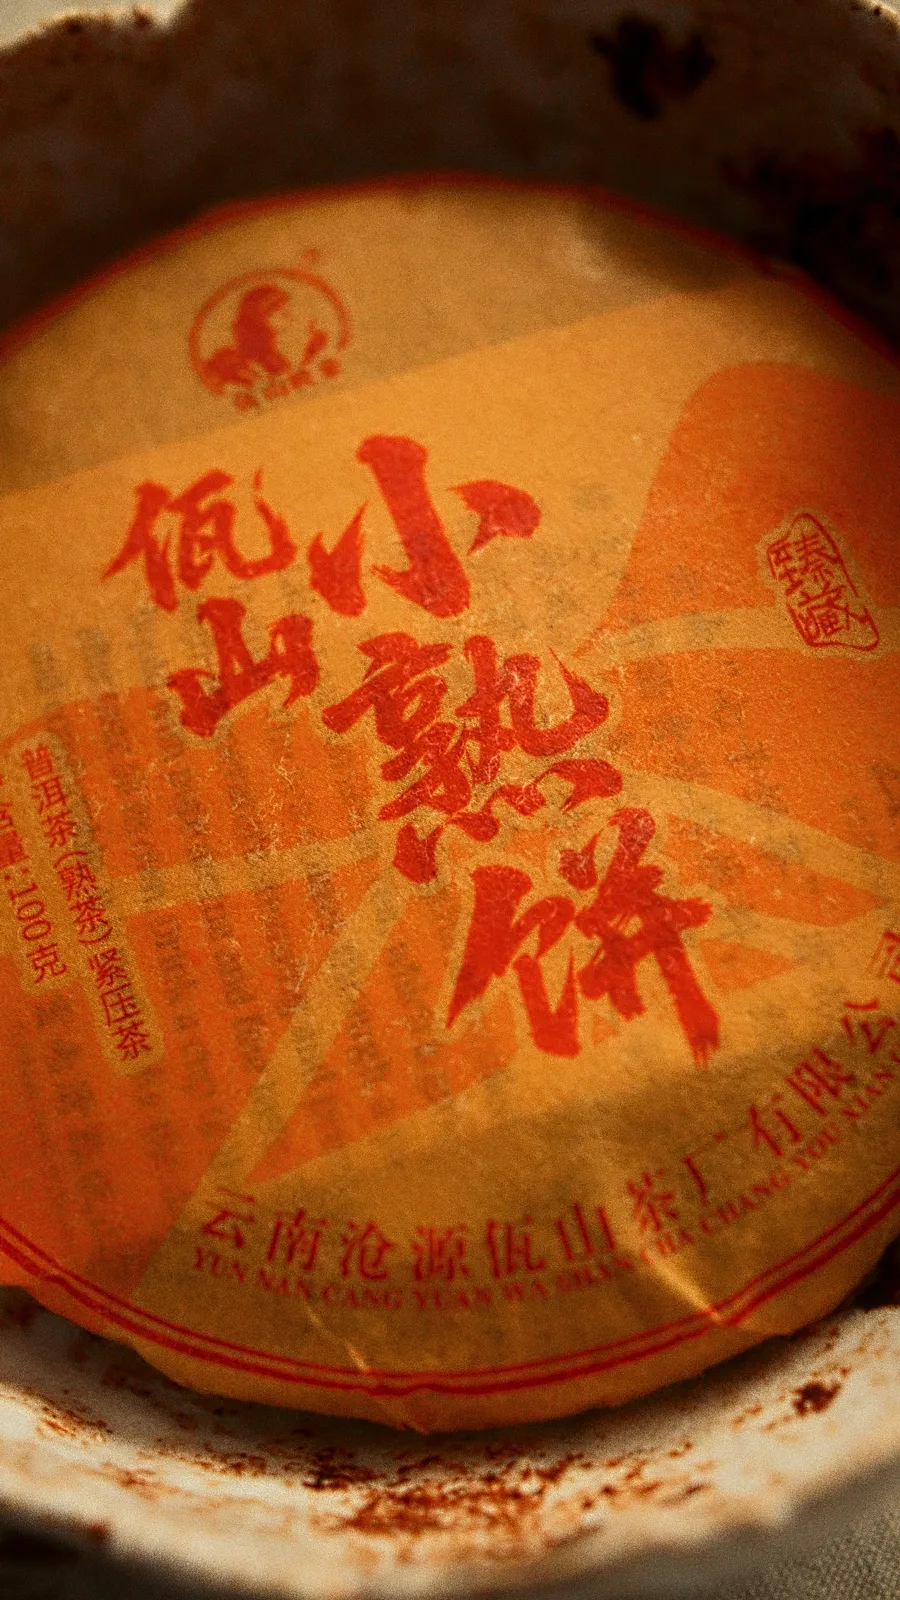 佤山
小熟饼
臻藏
普洱茶(熟茶)紧压茶
含量:100克
云南沧源佤山茶厂有限公司
YUN NAN CANG YUAN WA SHAN CHA CHANG YOU XIAN